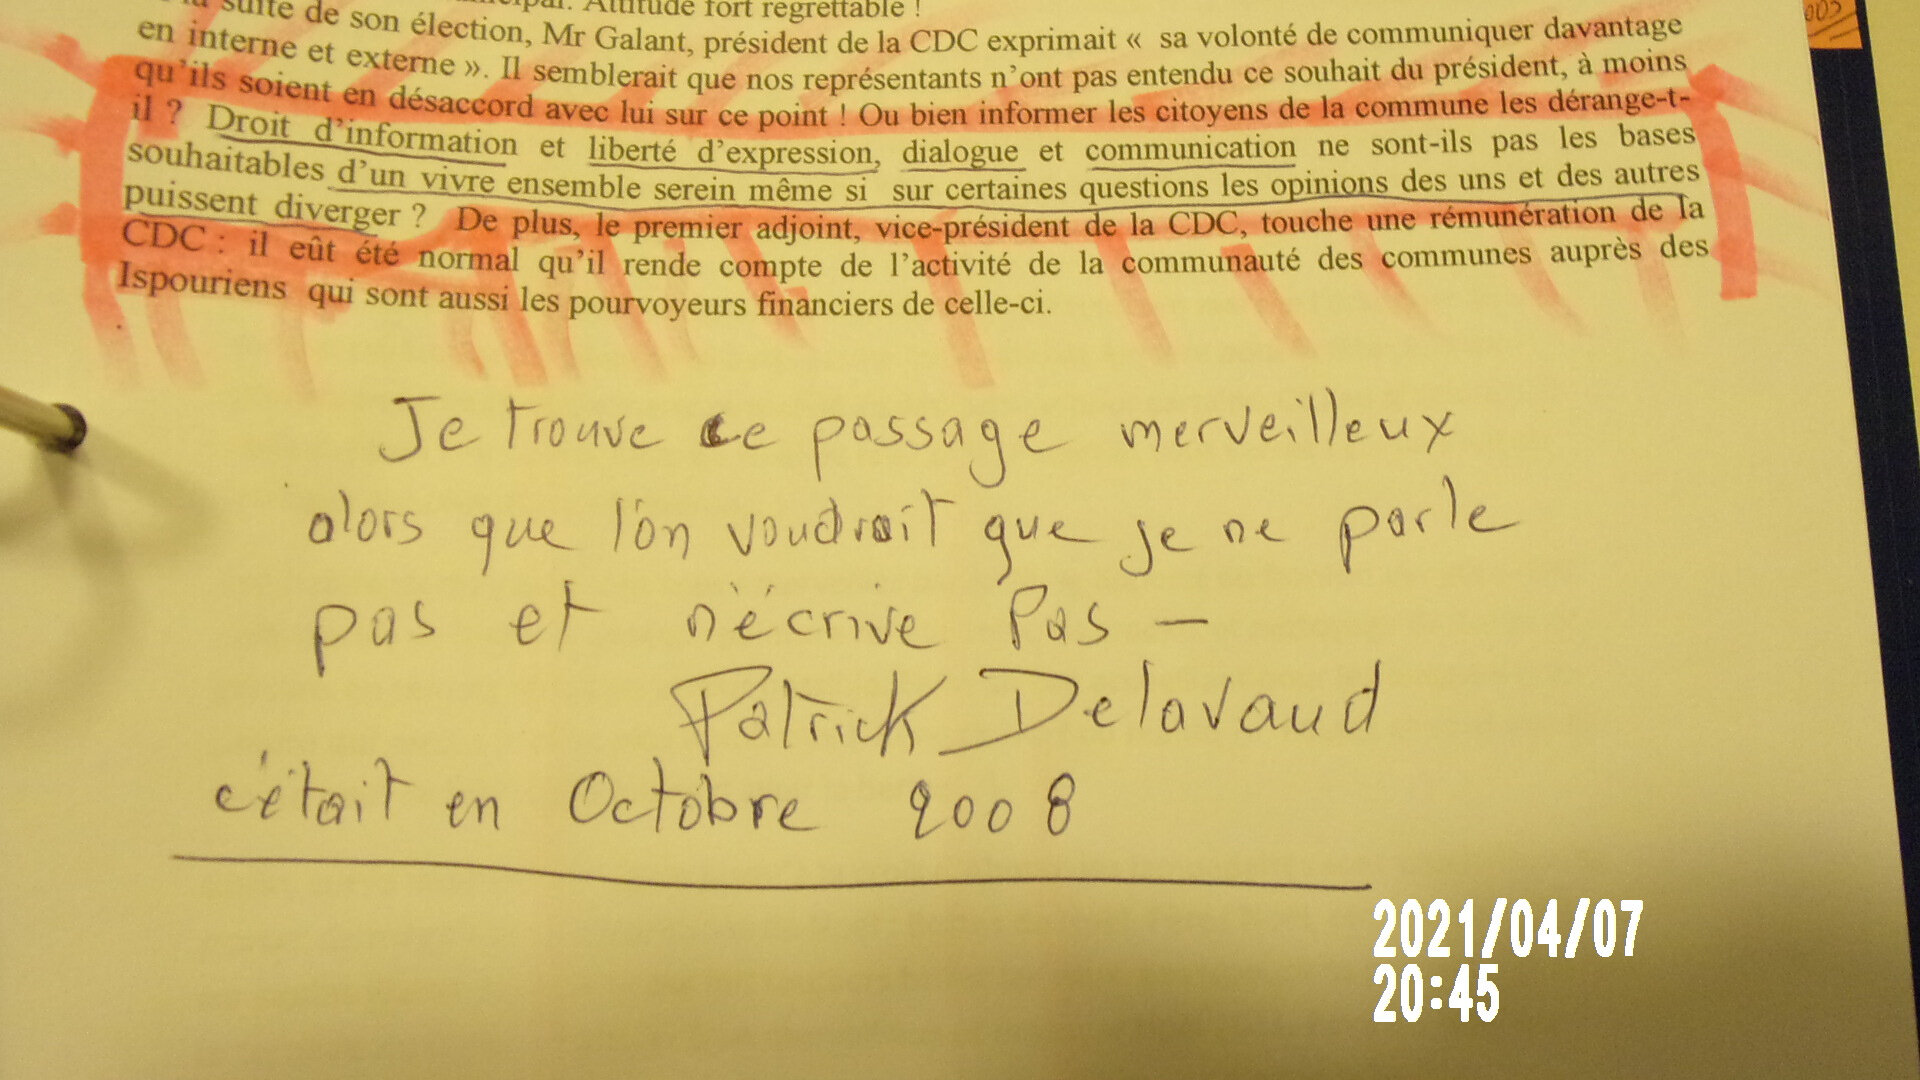 Attitude fort regrettable !
suite de son élection, Mr Galant, président de la CDC exprimait « sa volonté de communiquer davantage
en interne et externe ». Il semblerait que nos représentants n'ont pas entendu ce souhait du président, à moins
qu'ils soient en désaccord avec lui sur ce point ! Ou bien informer les citoyens de la commune les dérange-t-
il ? Droit d'information et liberté d'expression, dialogue et communication ne sont-ils pas les bases
souhaitables d'un vivre ensemble serein même si sur certaines questions les opinions des uns et des autres
puissent diverger ? De plus, le premier adjoint, vice-président de la CDC, touche une rémunération de la
CDC : il eût été normal qu'il rende compte de l'activité de la communauté des communes auprès des
Ispouriens qui sont aussi les pourvoyeurs financiers de celle-ci.
Je trouve ce passage merveilleux
alors que l'on voudrait que je ne parle
pas et n'écrive Pas –
Patrick Delavaud
c'était en Octobre 2008
2021/04/07
20:45